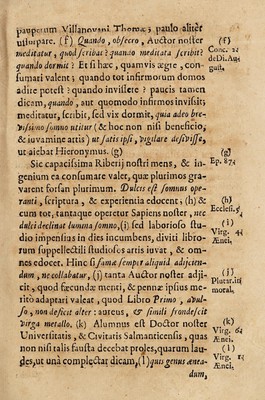 pauperum Villanovani Thomæ; paulo aliter
usurpare. (f) Quando, obsecro, Auctor noster
meditatur, quod scribat? quando meditata scribit?
quando dormit? Et si hæc, quamvis ægre, con-
sumari valent; quando tot infirmorum domos
adire potest? quando invisere? paucis tamen
dicam, quando, aut quomodo infirmos invisit;
meditatur, scribit, sed vix dormit, quia adeo bre-
vissimo somno utitur (& hoc non nisi beneficio,
& iuvamine artis) ut satis ipsi, vigilare desisse,
ut aiebat Hieronymus. (g)
Sic capacissima Riberij nostri mens, & in-
genium ea consumare valet, quæ plurimos gra-
varent forsan plurimum. Dulcis est somnus ope-
ranti, scriptura, & experientia edocent; (h) &
cum tot, tantaque operetur Sapiens noster, nec
dulci declinat lumina somno, (i) sed laborioso stu-
dio impensius in dies incumbens, diviti libro-
rum suppellectili studiosos artis iuvat, & om-
nes edocet. Hinc si fama semper aliquid adjicien-
dum, ne collabatur, (j) tanta Auctor noster adji-
cit, quod fæcundæ menti, & pennæ ipsius me-
rito adaptari valeat, quod Libro Primo, avul-
so, non deficit alter: aureus, & simili frondescit
virga metallo. (k) Alumnus est Doctor noster
Universitatis, & Civitatis Salmanticensis, quas
non nisi talis fausta decebat proles, quarum lau-
des, ut una complectar dicam, (l) quis genus Ænea-
dum,
(f)
Conc. 22
de Di. Au
gust.
(g)
Ep. 874
(h)
Ecclesi. 5
(i)
Virg. 4.
Ænei.
(j)
Plutar. in
moral.
(k)
Virg. 6.
Ænei.
(l)
Virg. 1.
Ænei.